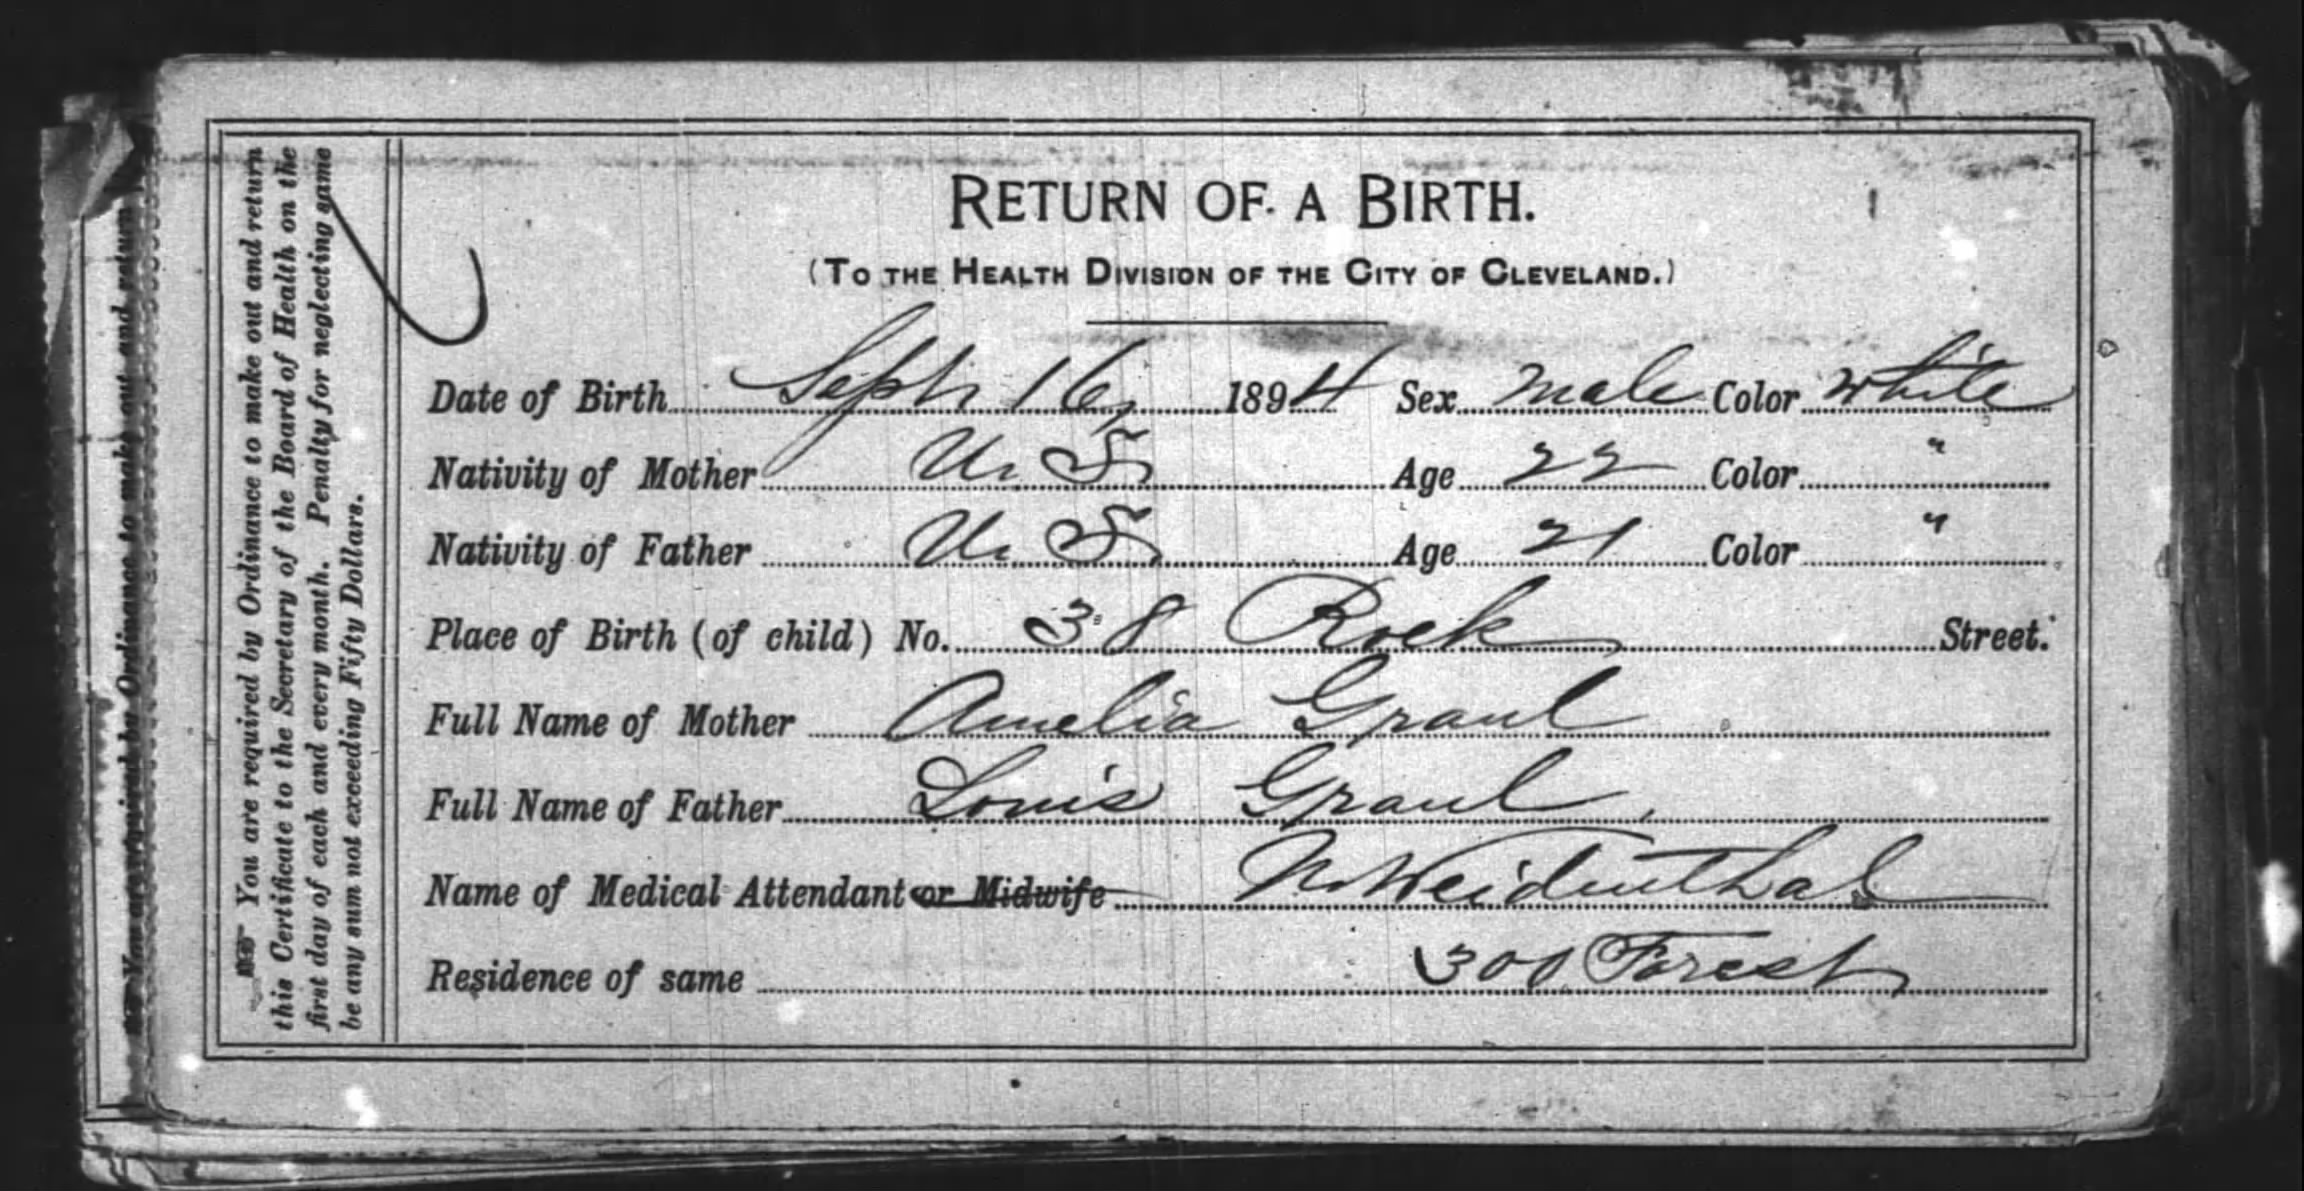 You are required by Ordinance to make out and return
this Certificate to the Secretary of the Board of Health on the
first day of each and every month. Penalty for neglecting same
be any sum not exceeding Fifty Dollars.
You are required by Ordinance to make out and return
RETURN OF A BIRTH.
(TO THE HEALTH DIVISION OF THE CITY OF CLEVELAND.)
Date of Birth Sept 16, 1894 Sex male Color white
Nativity of Mother U. S. Age 22 Color "
Nativity of Father U. S. Age 21 Color "
Place of Birth (of child) No. 38 Rock Street.
Full Name of Mother Amelia Graul
Full Name of Father Louis Graul
Name of Medical Attendant or Midwife N. Weidenthal
Residence of same 300 Forest